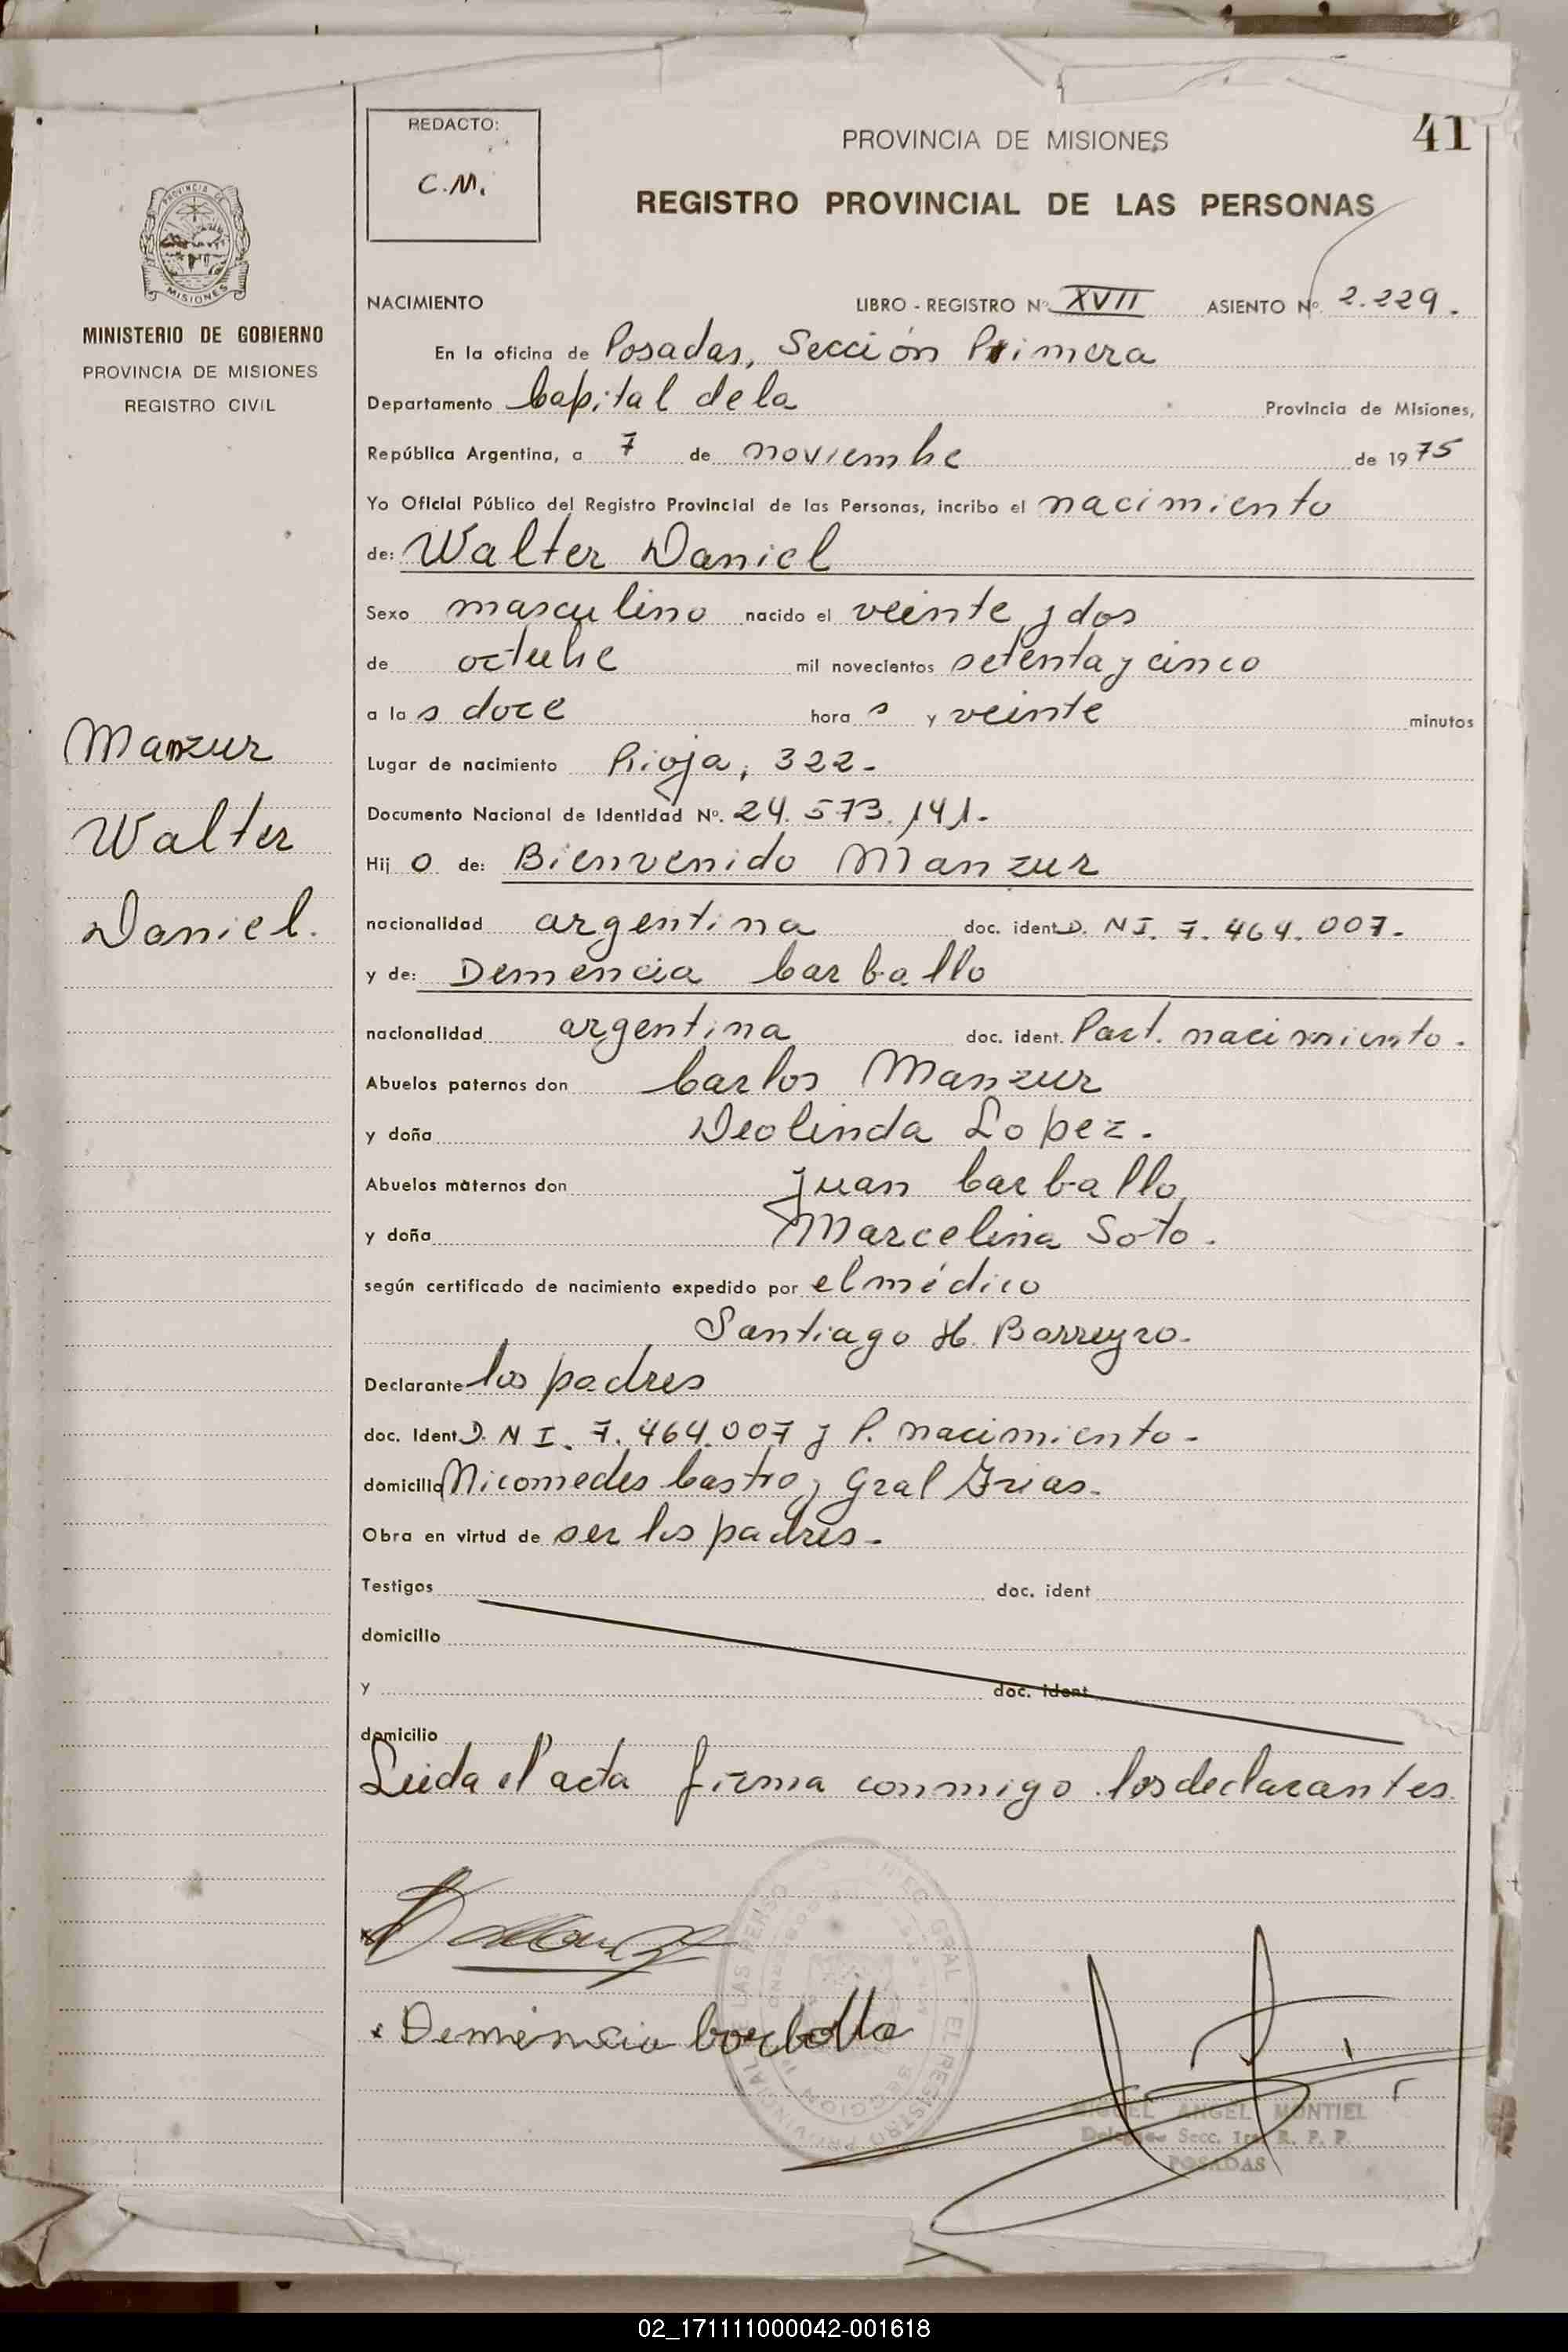 REDACTO:
C.M.
PROVINCIA DE MISIONES
41
REGISTRO PROVINCIAL DE LAS PERSONAS
PROVINCIA DE
MISIONES
MINISTERIO DE GOBIERNO
PROVINCIA DE MISIONES
REGISTRO CIVIL
Manzur
Walter
Daniel.
NACIMIENTO LIBRO - REGISTRO Nº XVII ASIENTO Nº 2.229.
En la oficina de Posadas, Sección Primera
Departamento Capital de la Provincia de Misiones,
República Argentina, a 7 de noviembre de 1975
Yo Oficial Público del Registro Provincial de las Personas, incribo el nacimiento
de: Walter Daniel
Sexo masculino nacido el veinte y dos
de octubre mil novecientos setenta y cinco
a las doce horas y veinte minutos
Lugar de nacimiento Rioja, 322-
Documento Nacional de Identidad Nº. 24.573.141.-
Hijo de: Bienvenido Manzur
nacionalidad argentina doc. ident. D.N.I. 7.464.007.-
y de: Demencia Carballo
nacionalidad argentina doc. ident. Part. nacimiento.
Abuelos paternos don Carlos Manzur
y doña Deolinda Lopez.
Abuelos maternos don Juan Carballo
y doña Marcelina Soto.
según certificado de nacimiento expedido por el médico
Santiago H. Barreyro.
Declarante los padres
doc. Ident. D.N.I. 7.464.007 y P. nacimiento-
domicilio Nicomedes Castro y Gral Frias.
Obra en virtud de ser los padres-
Testigos doc. ident
domicilio
y doc. ident
domicilio
Leida el acta firma conmigo los declarantes
x Demencia Carballo
SECCION 1ª
MIGUEL ANGEL MONTIEL
Delegado Secc. 1ra. R. P. P.
POSADAS
02_171111000042-001618